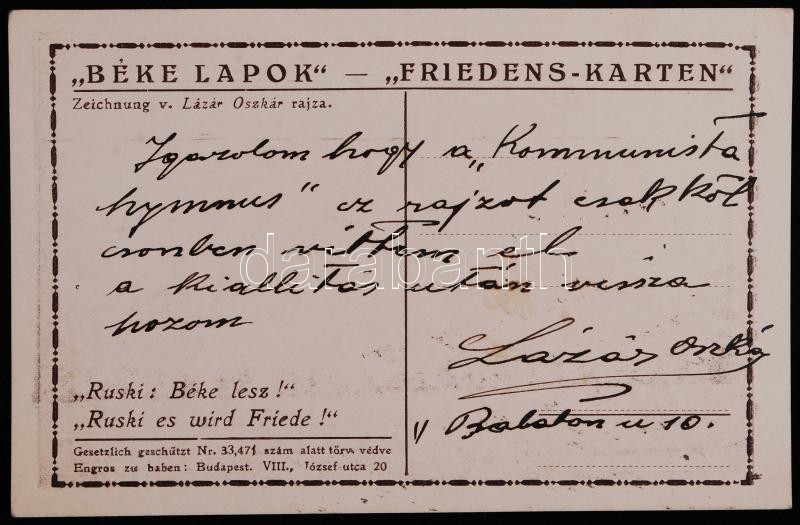 „BÉKE LAPOK“ — „FRIEDENS-KARTEN“
Zeichnung v. Lázár Oszkár rajza.
Igazolom hogy a „Kommunista
hymnus" cz rajzot csak köl
csönben vittem el
a kiállitás után vissza
hozom
Lázár Oszkár
„ Balaton u 10.
„Ruski: Béke lesz!“
„Ruski es wird Friede!“
Gesetzlich geschützt Nr. 33,471 szám alatt törv. védve
Engros zu haben: Budapest. VIII., József utca 20
darabanth